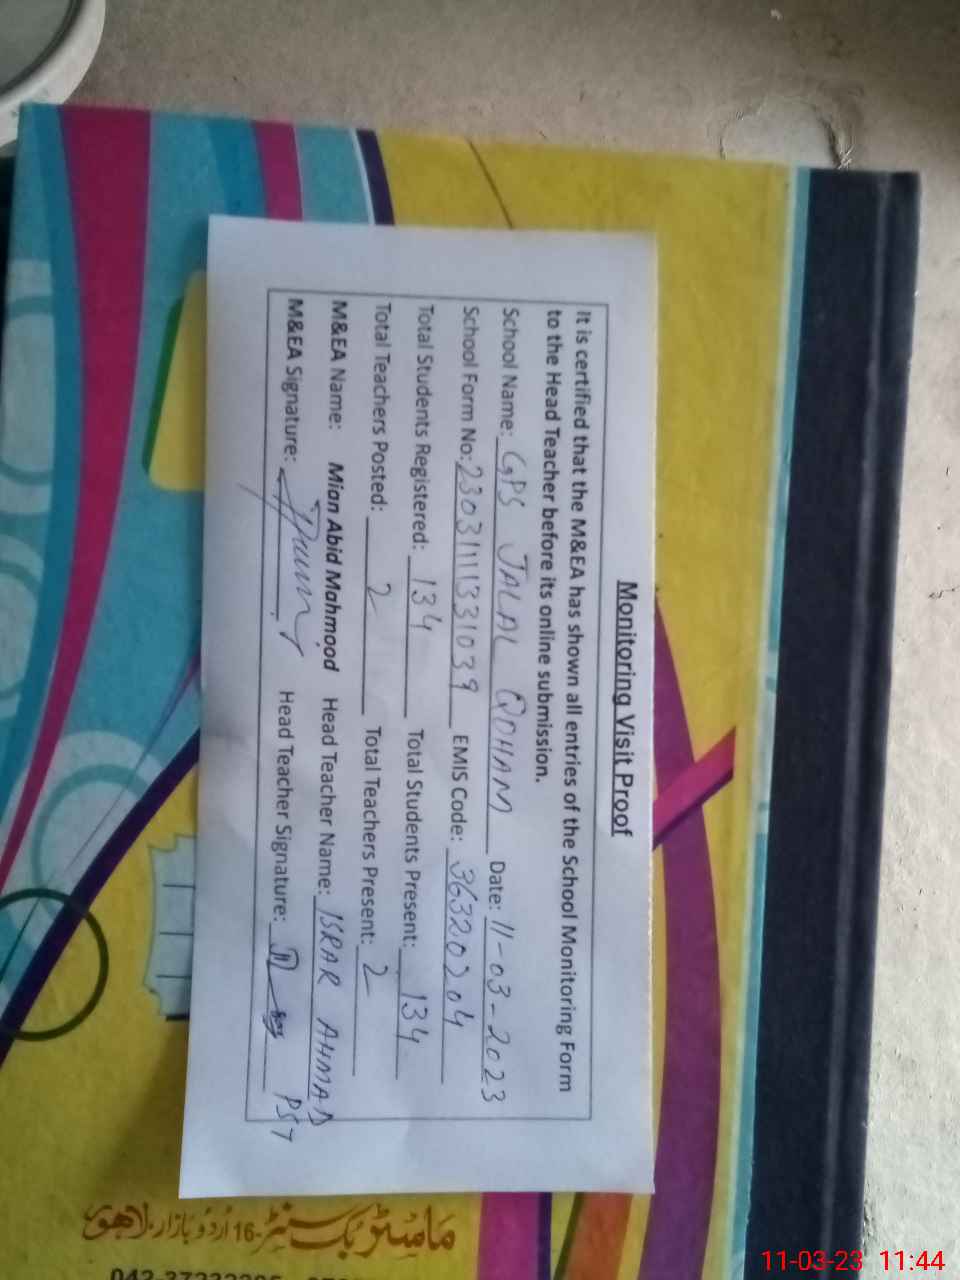 Monitoring Visit Proof
It is certified that the M&EA has shown all entries of the School Monitoring Form
to the Head Teacher before its online submission.
School Name: GPS JALAL QOHAM Date: 11-03-2023
School Form No: 2303111331039 EMIS Code: 36320204
Total Students Registered: 134 Total Students Present: 134
Total Teachers Posted: 2 Total Teachers Present: 2
M&EA Name: Mian Abid Mahmood Head Teacher Name: ISRAR AHMAD
M&EA Signature: Head Teacher Signature: PST
ماسٹر بک سنٹر 16-اُردُو بازار، لاہور
11-03-23 11:44